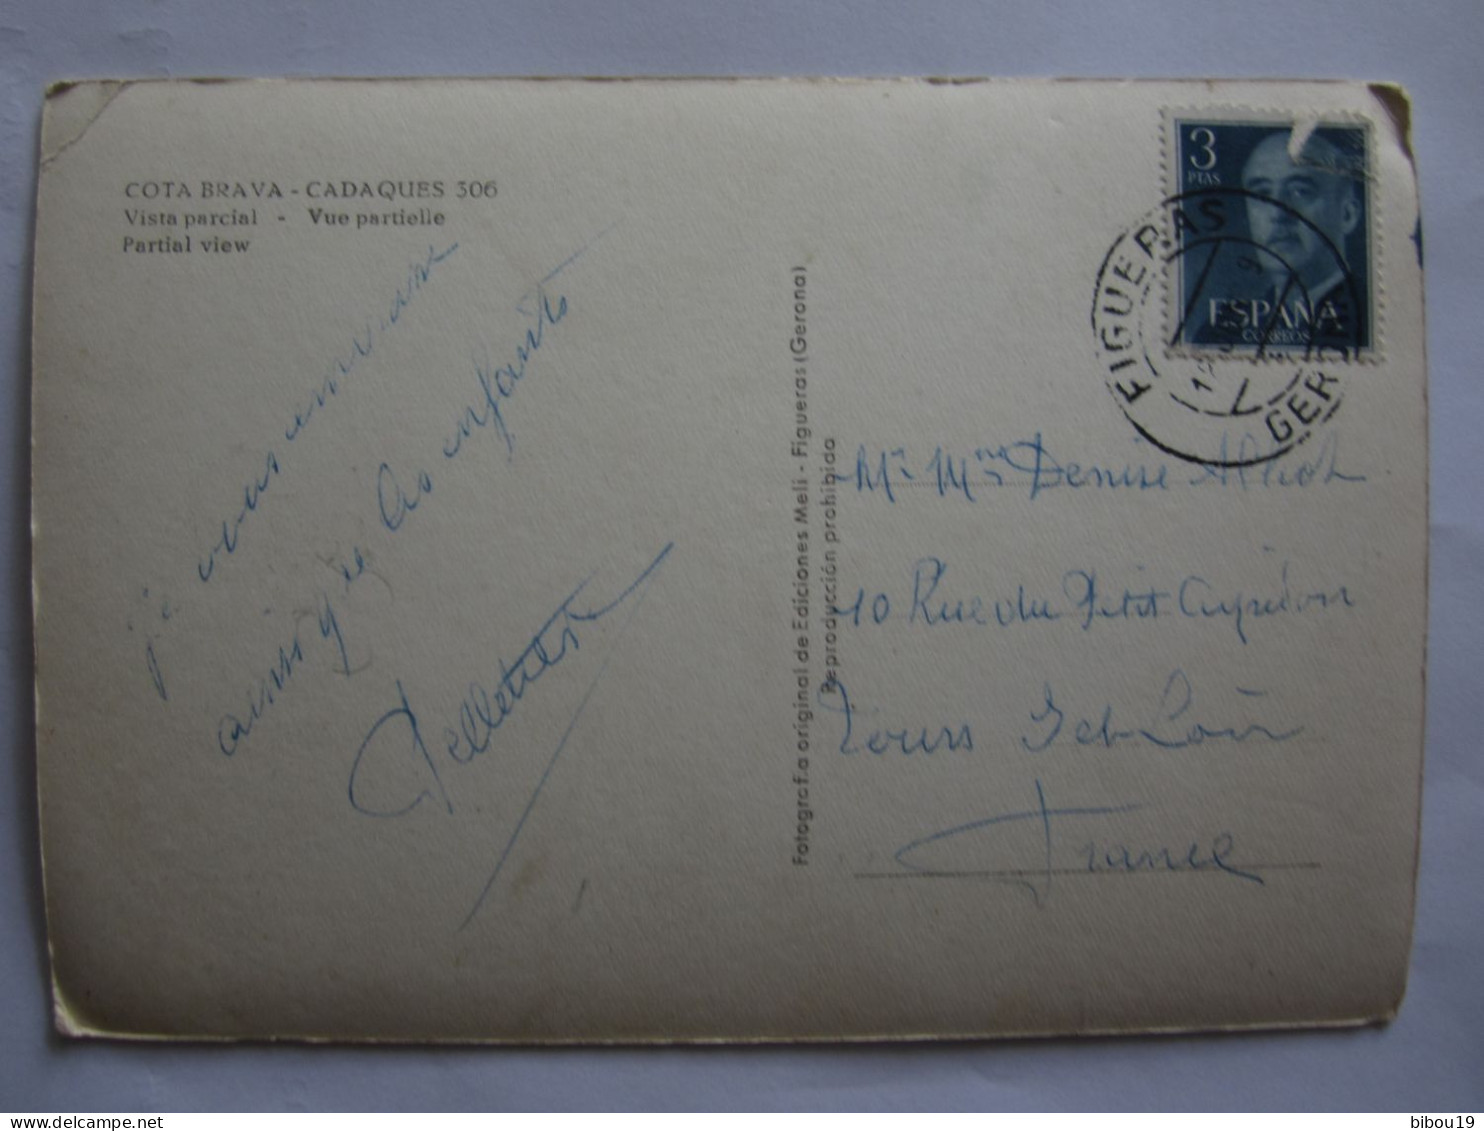 COTA BRAVA - CADAQUES 306
Vista parcial - Vue partielle
Partial view
je vous
ainsi q les enfants
Pelletier
Fotografia original de Ediciones Meli - Figueras (Gerona)
Reproducción prohibida
3
PTAS
ESPAÑA
CORREOS
FIGUERAS
GERONA
Mr Mme Denise
10 Rue du Petit
Tours Iet Loir
France
bibou19